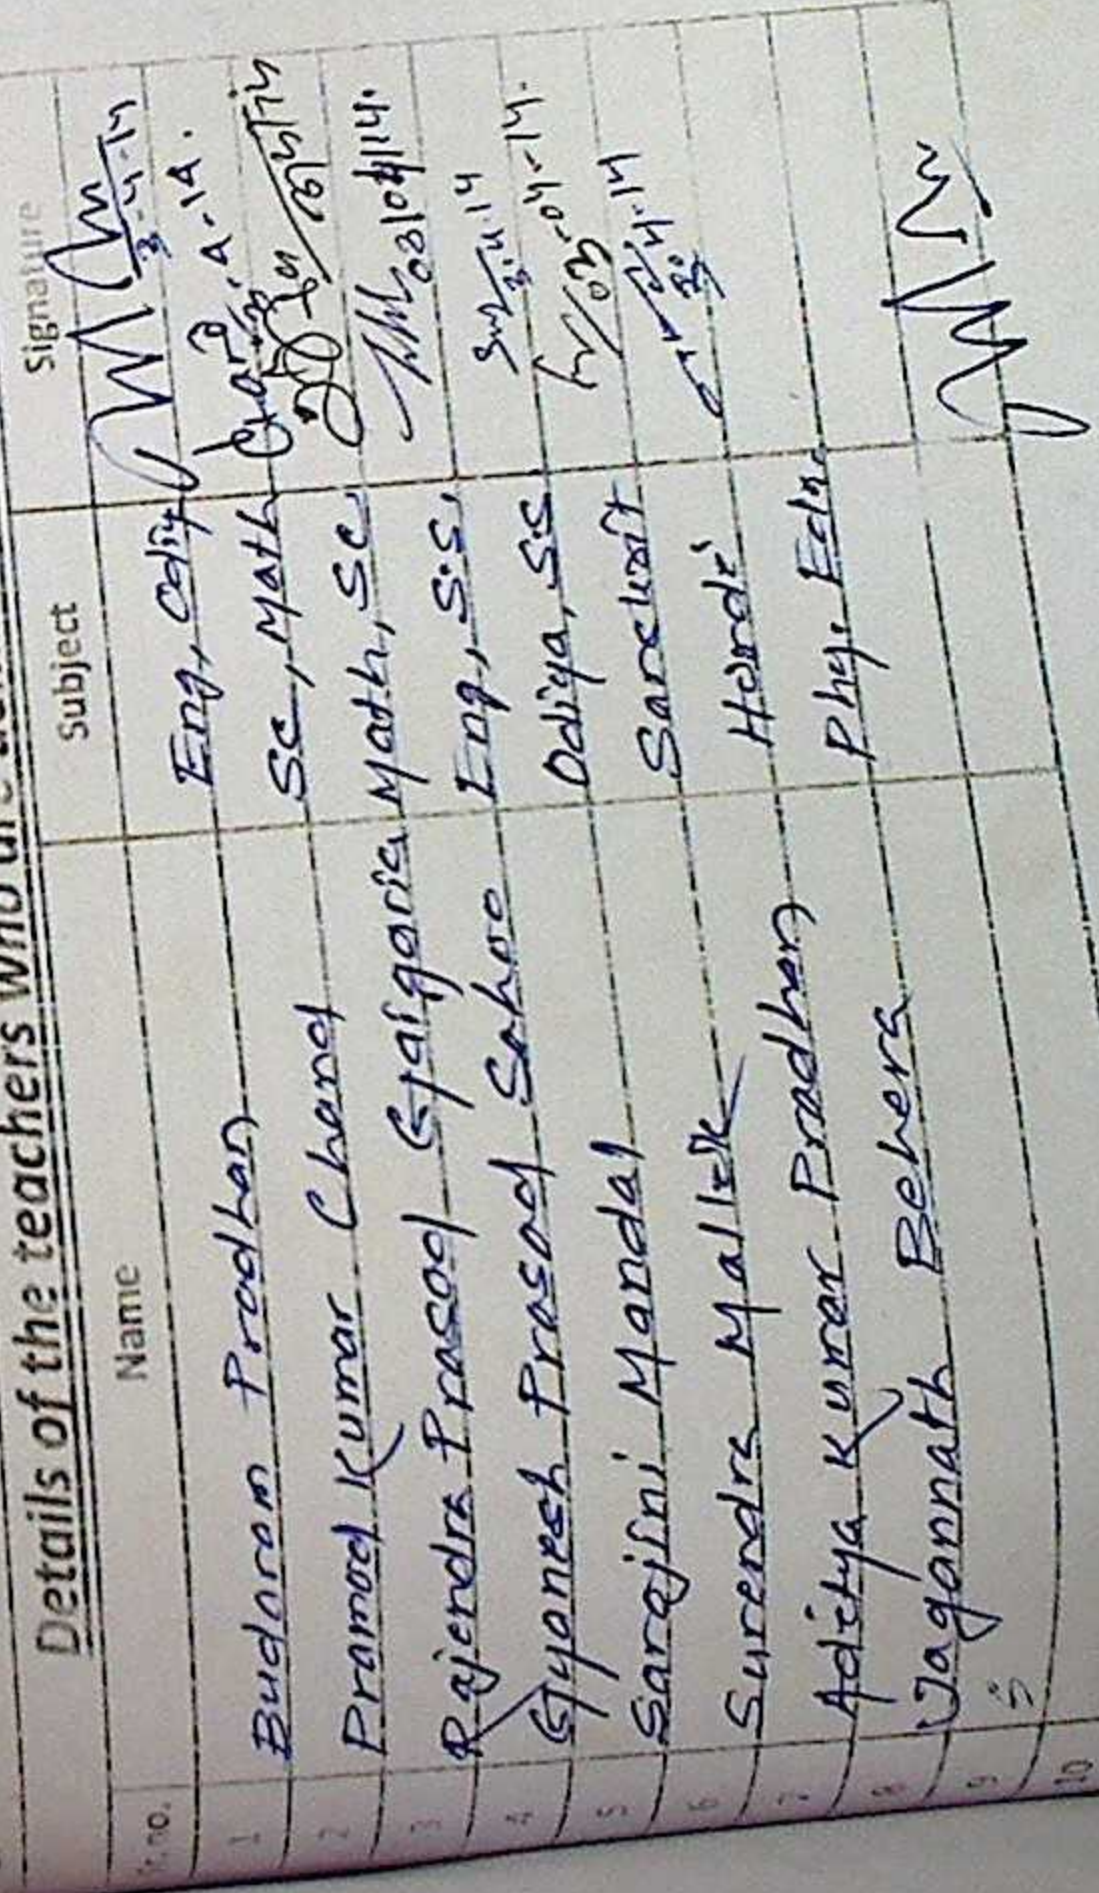 Details of the teachers who are
Sr. no. Name Subject Signature
1 Budaram Pradhan Eng, Odiy 3-4-14
2 Pramod Kumar Chand Sc, Math Chand 3.4.14.
3 Rajendra Prasad Gaigoria Math, Sc
4 Gyanesh Prasad Sahoo Eng, S.S, 03/04/14.
5 Sarojini Mandal Odiya, S.S 3.4.14
6 Surendra Mallik Sanskrit 03-04-14.
7 Aditya Kumar Pradhan Hindi 3.4.14
8 Jagannath Behera Phy. Edn.
9
10